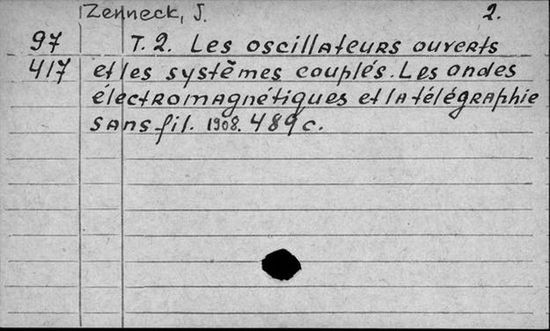 Zenneck, J. 2.
97 T. 2. Les oscillateurs ouverts
417 et les systèmes couplés. Les ondes
électromagnétiques et la télégraphie
sans fil. 1908. 489 c.